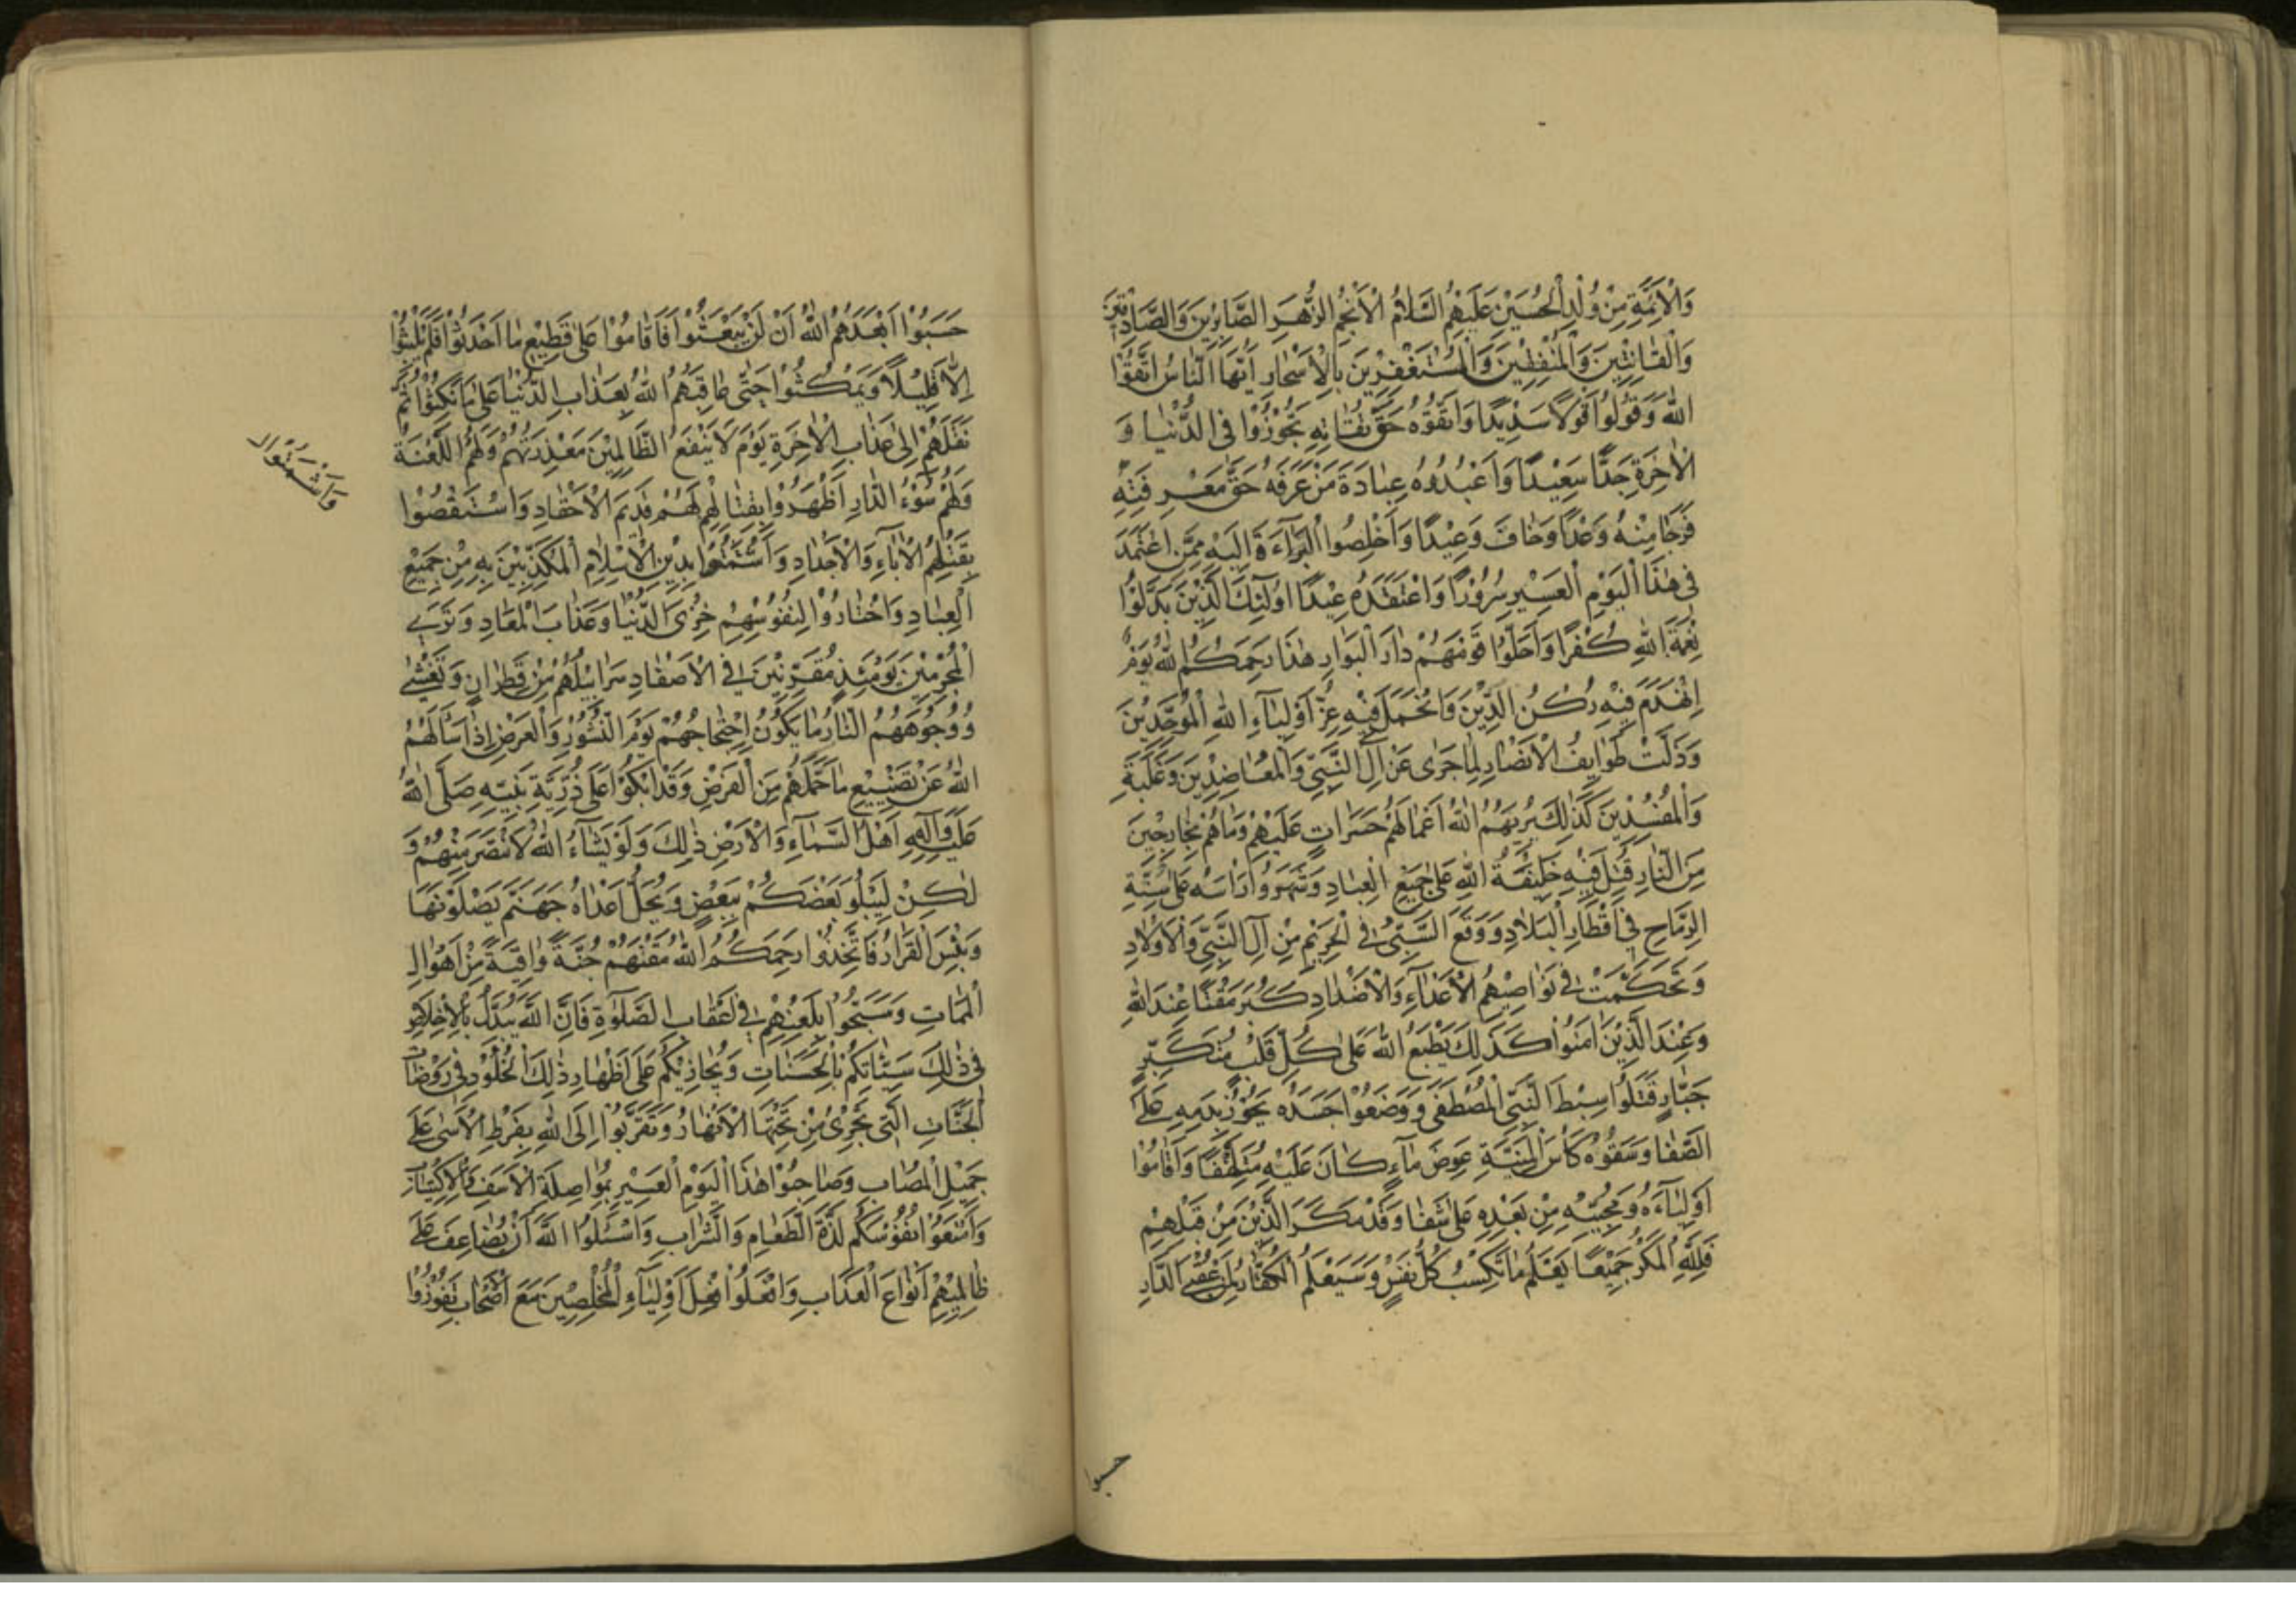 وَالْاَئِمَّةِ مِنْ وُلْدِ الْحُسَيْنِ عَلَيْهِمُ السَّلَامُ الْاَنْجُمِ الزُّهَرِ الصَّابِرِيْنَ وَالصَّادِقِيْنَ
وَالْقَانِتِيْنَ وَالْمُنْفِقِيْنَ وَالْمُسْتَغْفِرِيْنَ بِالْاَسْحَارِ اَيُّهَا النَّاسُ اتَّقُوْا
اللهَ وَقُوْلُوْا قَوْلًا سَدِيْدًا وَاتَّقُوْهُ حَقَّ تُقَاتِهِ تَحُوْزُوْا فِى الدُّنْيَا وَ
الْاٰخِرَةِ جَدًّا سَعِيْدًا وَاعْبُدُوْهُ عِبَادَةَ مَنْ عَرَفَهُ حَقَّ مَعْرِفَتِهِ
فَرَجَا مِنْهُ وَعْدًا وَخَافَ وَعِيْدًا وَاَخْلِصُوا الْبَرَآءَةَ اِلَيْهِ مِمَّنِ اعْتَمَدَ
فِى هٰذَا الْيَوْمِ الْعَسِيْرِ سُرُوْرًا وَاعْتَقَدَهُ عِيْدًا اُولٰٓئِكَ الَّذِيْنَ بَدَّلُوْا
نِعْمَةَ اللهِ كُفْرًا وَاَحَلُّوْا قَوْمَهُمْ دَارَ الْبَوَارِ هٰذَا رَحِمَكُمُ اللهُ يَوْمٌ
اِنْهَدَمَ فِيْهِ رُكْنُ الدِّيْنِ وَانْخَمَلَ فِيْهِ عِزُّ اَوْلِيَآءِ اللهِ الْمُوَحِّدِيْنَ
وَذَلَّتْ طَوَايِفُ الْاَنْصَارِ لِمَا جَرٰى عَنْ اٰلِ النَّبِيِّ وَالْمُعَاضِدِيْنَ وَغَلَبَةِ
وَالْمُفْسِدِيْنَ كَذٰلِكَ يُرِيْهِمُ اللهُ اَعْمَالَهُمْ حَسَرَاتٍ عَلَيْهِمْ وَمَا هُمْ بِخَارِجِيْنَ
مِنَ النَّارِ قُتِلَ فِيْهِ خَلِيْفَةُ اللهِ عَلٰى جَمِيْعِ الْعِبَادِ وَشَهَرُوْا رَاْسَهُ عَلٰى اَسِنَّةِ
الرِّمَاحِ فِيْ اَقْطَارِ الْبِلَادِ وَوَقَعَ السَّبْيُ فِى الْحَرِيْمِ مِنْ اٰلِ النَّبِيِّ وَالْاَوْلَادِ
وَتَحَكَّمَتْ فِى نَوَاصِيْهِمُ الْاَعْدَآءُ وَالْاَضْدَادُ كَبُرَ مَقْتًا عِنْدَ اللهِ
وَعِنْدَ الَّذِيْنَ اٰمَنُوْا كَذٰلِكَ يَطْبَعُ اللهُ عَلٰى كُلِّ قَلْبِ مُتَكَبِّرٍ
جَبَّارٍ قَتَلُوْا سِبْطَ النَّبِيِّ الْمُصْطَفٰى وَوَضَعُوْا جَسَدَهُ بِدَمِهِ عَلَى
الصَّفَا وَسَقَوْهُ كَاْسَ الْمَنِيَّةِ عِوَضَ مَآءٍ كَانَ عَلَيْهِ مُتَلَهِّفًا وَاَقَامُوْا
اَوْلِيَآءَهُ وَمُحِبِّيْهِ مِنْ بَعْدِهِ عَلٰى شَفَا وَقَدْ مَكَرَ الَّذِيْنَ مِنْ قَبْلِهِمْ
فَلِلّٰهِ الْمَكْرُ جَمِيْعًا يَعْلَمُ مَا تَكْسِبُ كُلُّ نَفْسٍ وَسَيَعْلَمُ الْكُفَّارُ لِمَنْ عُقْبَى الدَّارِ
حسبوا
حَسِبُوْا اَبْعَدَهُمُ اللهُ اَنْ لَنْ يُبْعَثُوْا فَاَقَامُوْا عَلٰى فَظِيْعِ مَا اَحْدَثُوْا فَلَمْ يَلْبَثُوْا
اِلَّا قَلِيْلًا وَيَمْكُثُوْا حَتّٰى عَاقَبَهُمُ اللهُ بِعَذَابِ الدُّنْيَا عَلٰى مَا نَكَثُوْا ثُمَّ
نَقَلَهُمْ اِلٰى عَذَابِ الْاٰخِرَةِ يَوْمَ لَا يَنْفَعُ الظَّالِمِيْنَ مَعْذِرَتُهُمْ وَلَهُمُ اللَّعْنَةُ
وَلَهُمْ سُوْٓءُ الدَّارِ اَظْهَرُوْا بِقِتَالِهِمْ لَهُمْ قَدِيْمَ الْاَحْقَادِ وَاسْتَقْصُوْا
بِقَتْلِهِمُ الْاٰبَآءِ وَالْاَجْدَادِ وَاَشْمَتُوْا بِدِيْنِ الْاِسْلَامِ الْمُكَذِّبِيْنَ بِهِ مِنْ جَمِيْعِ
وَاَشْمَتُوْا
الْعِبَادِ وَاخْتَارُوْا لِنُفُوْسِهِمْ خِزْىَ الدُّنْيَا وَعَذَابَ الْمَعَادِ وَتَرٰى
الْمُجْرِمِيْنَ يَوْمَئِذٍ مُقَرَّنِيْنَ فِى الْاَصْفَادِ سَرَابِيْلُهُمْ مِنْ قَطِرَانٍ وَتَغْشٰى
وُجُوْهَهُمُ النَّارُ مَا يَكُوْنُ اِحْتِجَاجُهُمْ يَوْمَ النُّشُوْرِ وَالْعَرْضِ اِذَا سَاَلَهُمُ
اللهُ عَنْ تَضْيِيْعِ مَا حَمَّلَهُمْ مِنَ الْفَرْضِ وَقَدْ اَبْكَوْا عَلٰى ذُرِّيَّةِ نَبِيِّهِ صَلَّى اللهُ
عَلَيْهِ وَاٰلِهِ اَهْلَ السَّمَآءِ وَالْاَرْضِ ذٰلِكَ وَلَوْ يَشَآءُ اللهُ لَانْتَصَرَ مِنْهُمْ وَ
لٰكِنْ لِيَبْلُوَ بَعْضَكُمْ بِبَعْضٍ وَيُحِلَّ اَعْدَاهُ جَهَنَّمَ يَصْلَوْنَهَا
وَبِئْسَ الْقَرَارُ فَاتَّخِذُوْا رَحِمَكُمُ اللهُ مَقْتَهُمْ جُنَّةً وَاقِيَةً مِنْ اَهْوَالِ
الْمَمَاتِ وَسَبِّحُوْا بِلَعْنِهِمْ فِى اَعْقَابِ الصَّلٰوةِ فَاِنَّ اللهَ يُبَدِّلُ بِالْاِخْلَاصِ
فِى ذٰلِكَ سَيِّئَاتِكُمْ بِالْحَسَنَاتِ وَيُجَازِيْكُمْ عَلٰى اِظْهَارِ ذٰلِكَ الْخُلُوْدَ فِى رَوْضَاتِ
الْجَنَّاتِ الَّتِى تَجْرِىْ مِنْ تَحْتِهَا الْاَنْهَارُ وَتَقَرَّبُوْا اِلَى اللهِ بِفَرْطِ الْاَسٰى عَلٰى
جَمِيْلِ الْمُصَابِ وَصَاحِبُوْا هٰذَا الْيَوْمَ الْعَسِيْرَ بِمُوَاصِلَةِ الْاَسَفِ وَالْاِكْتِئَابِ
وَامْنَعُوْا نُفُوْسَكُمْ لَذَّةَ الطَّعَامِ وَالشَّرَابِ وَاسْئَلُوا اللهَ اَنْ يُضَاعِفَ عَلٰى
ظَالِمِيْهِمْ اَنْوَاعَ الْعَذَابِ وَافْعَلُوْا فِعْلَ اَوْلِيَآءِ الْمُخْلِصِيْنَ مَعَ اَصْحَابٍ تَفُوْزُوْا